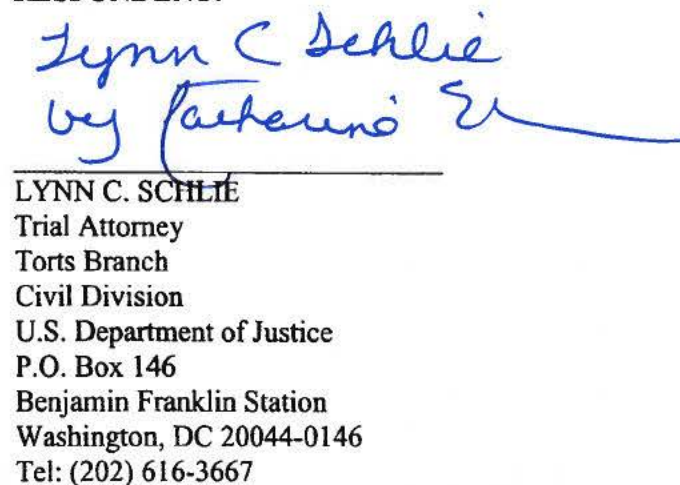 Lynn C Schlie
by Catherine
LYNN C. SCHLIE
Trial Attorney
Torts Branch
Civil Division
U.S. Department of Justice
P.O. Box 146
Benjamin Franklin Station
Washington, DC 20044-0146
Tel: (202) 616-3667